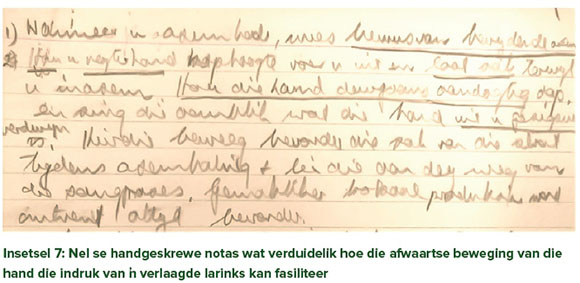 1) Wanneer u asemhaal, wees bewus van
Hou u regterhand voor u uit en laat sak terwyl
u inasem Hou die hand dop,
en sing die oomblik wat die hand uit u gesigsveld
verdwyn
is. Hierdie beweeg bevorder die sak van die
tydens asemhaling + lei die aandag weg van
die sangproses. Gemakliker vokaalproduksie word
omtrent altyd bevorder.
Insetsel 7: Nel se handgeskrewe notas wat verduidelik hoe die afwaartse beweging van die
hand die indruk van ŉ verlaagde larinks kan fasiliteer